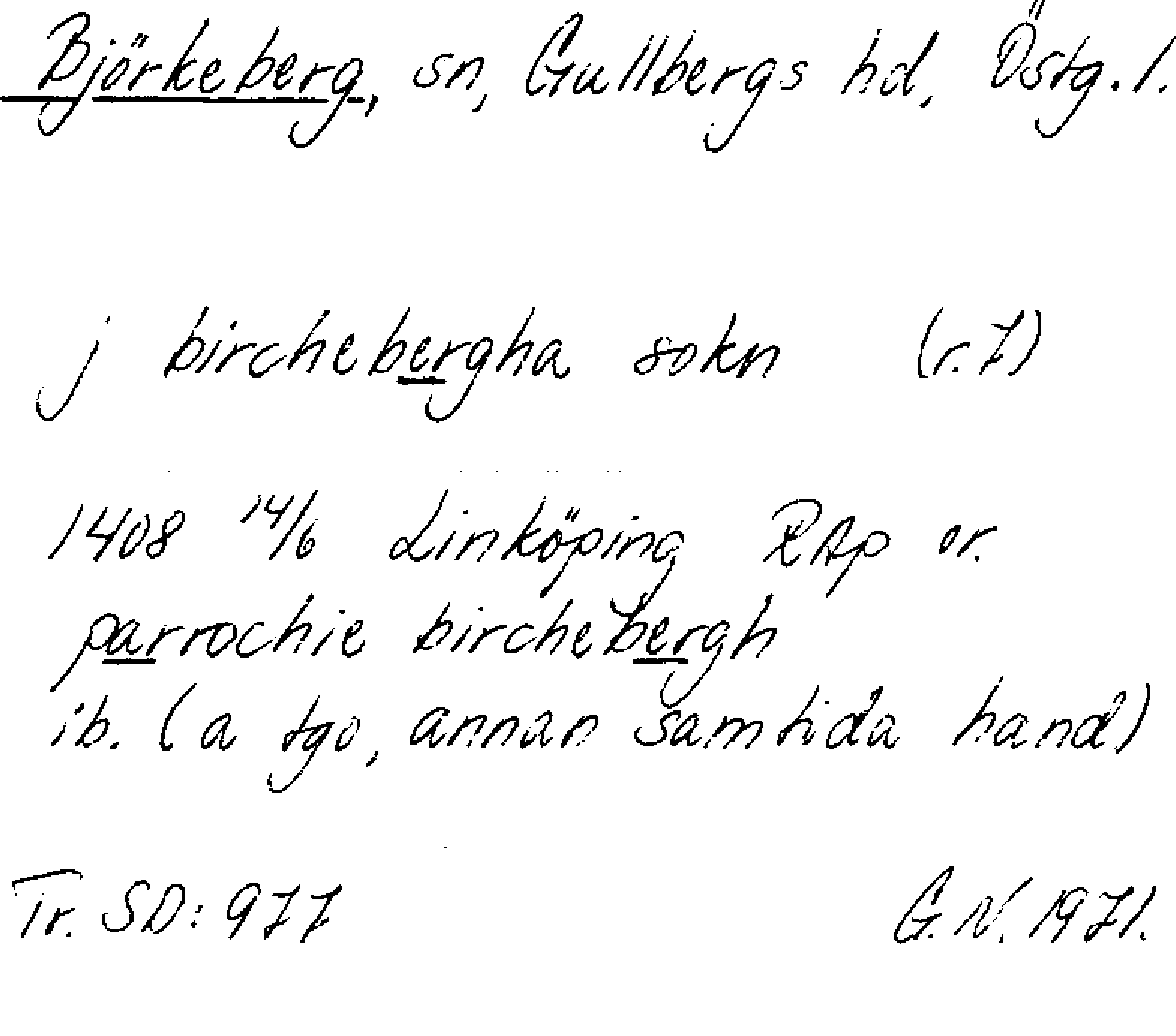 Björkeberg, sn, Gullbergs hd, Östg. l.
j birchebergha sokn (r. 7)
1408 14/6 Linköping RAp or.
parrochie birchebergh
ib. (a tgo, annan samtida hand)
Tr. SD: 977 G. N. 1971.